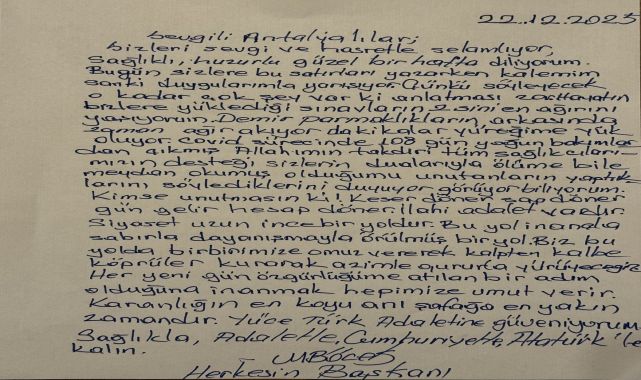 22.12.2025
Sevgili Antalyalılar;
Bizleri sevgi ve hasretle selamlıyor,
Sağlıklı, huzurlu güzel bir hafta diliyorum.
Bugün sizlere bu satırları yazarken kalemim
sanki duygularımla yarışıyor. Çünkü söyleyecek
o kadar çok şey var ki anlatması zor. Hayatın
bizlere yüklediği sınavların 2.sini en ağırını
yaşıyorum. Demir parmaklıkların arkasında
zaman ağır akıyor dakikalar yüreğime yük
oluyor. Covid sürecinde 108 gün yoğun bakımlar
dan çıkmış Allahımın takdiri tüm sağlıkcıları-
mızın desteği sizlerin dualarıyla ölüme bile
meydan okumuş olduğumu unutanların yaptık
larını söylediklerini duyuyor görüyor biliyorum.
Kimse unutmasın ki! Keser döner sap döner
gün gelir hesap döner. İlahi adalet vardır.
Siyaset uzun ince bir yoldur. Bu yol inançla
sabırla dayanışmayla örülmüş bir yol. Biz bu
yolda birbirimize omuz vererek kalpten kalbe
köprüler kurarak azimle gururla yürüyeceğiz
Her yeni gün özgürlüğüme atılan bir adım
olduğuna inanmak hepimize umut verir.
Karanlığın en koyu anı şafağa en yakın
zamandır. Yüce Türk Adaletine güveniyorum
Sağlıkla, Adaletle, Cumhuriyetle, Atatürk'le
kalın.
M BÖCEK
Herkesin Başkanı